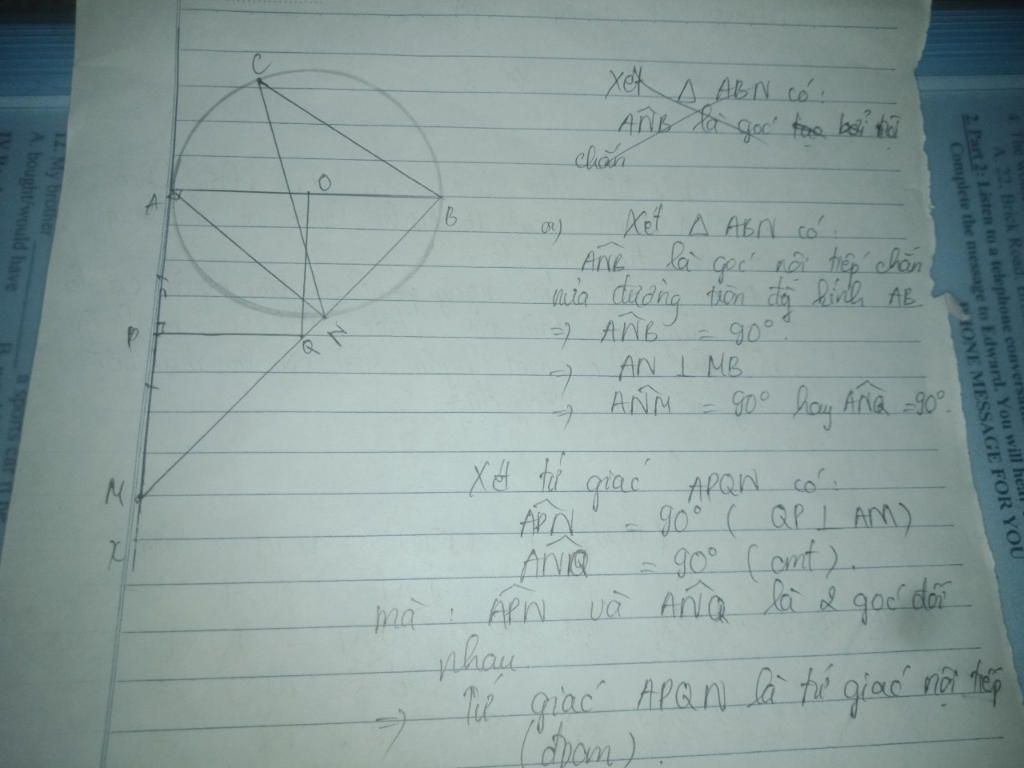 C
A
O
B
P
Q
N
M
x
Xét △ ABN có:
ANB là góc
chắn
a) Xét △ ABN có:
ANB là góc nội tiếp chắn
nửa đường tròn đg kính AB
=> ANB = 90°.
=> AN ⊥ MB
=> ANM = 90° hay ANQ = 90°.
Xét tứ giác APQN có:
APN = 90° ( QP ⊥ AM )
ANQ = 90° ( cmt ).
mà : APN và ANQ là 2 góc đối
nhau.
=> Tứ giác APQN là tứ giác nội tiếp
( đpcm ).
12. My brother
A. bought/would have B.
a sports car if he
4. The
A. 22, Brick Road,
2. Part 2: Listen to a telephone conversation
Complete the message to Edward. You will hear
PHONE MESSAGE FOR YOU